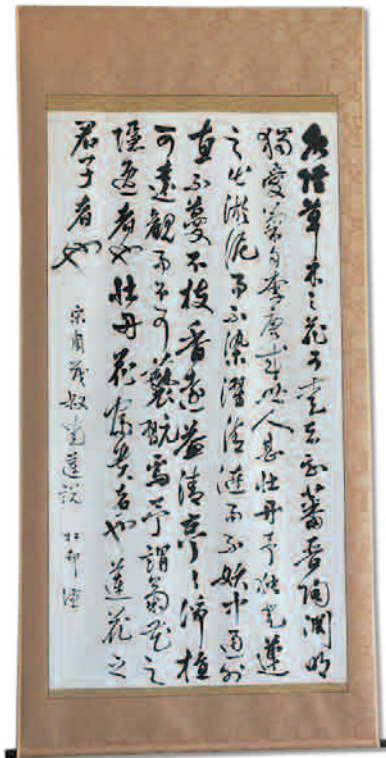 水陸草木之花可愛者甚蕃晉陶淵明
獨愛菊自李唐來世人甚牡丹予獨愛蓮
之出淤泥而不染濯清漣而不妖中通外
直不蔓不枝香遠益清亭々淨植
可遠觀而不可褻翫焉予謂菊花之
隱逸者也牡丹花富貴者也蓮花之
君子者也
宋周茂叔愛蓮說